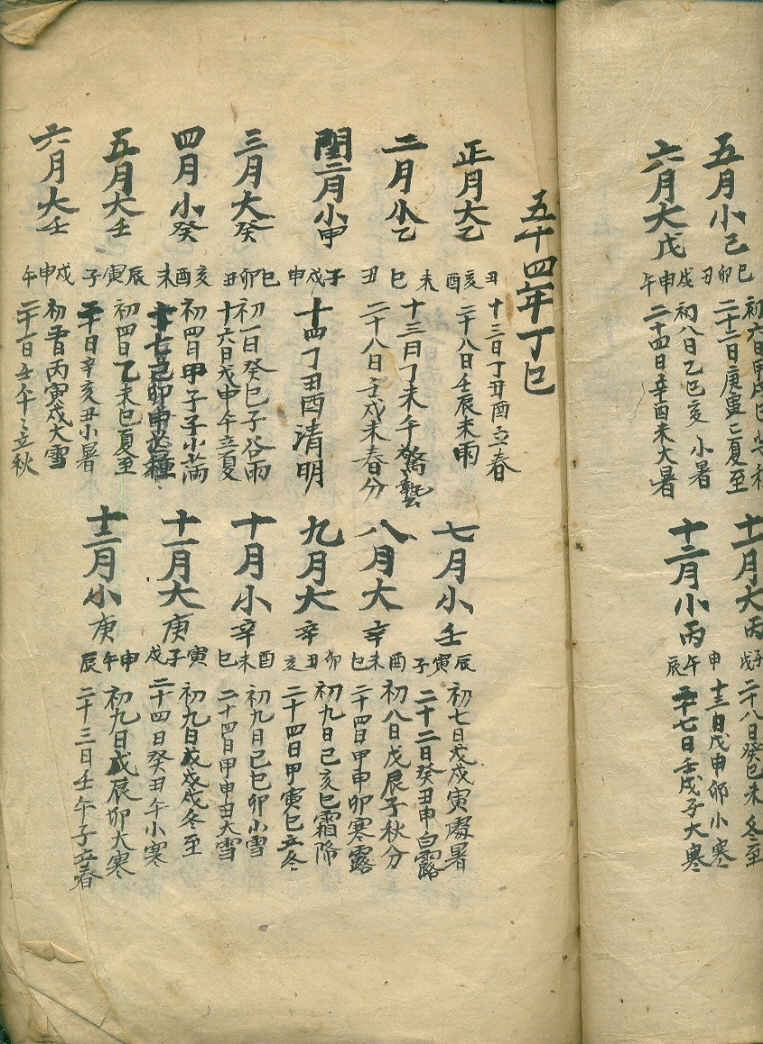 五月小己
巳卯丑
二十二日庚寅二夏至
六月大戊
戌申午
初八日乙巳亥小暑
二十四日辛酉未大暑
十一月大丙
子戌
二十八日癸巳未冬至
十二月小丙
申午辰
十三日戊申卯小寒
二十七日壬戌子大寒
五十四年丁巳
正月大乙
丑亥酉
十三日丁丑酉立春
二十八日壬辰未雨
二月小乙
未巳丑
十三日丁未午驚蟄
二十八日壬戌未春分
閏二月小甲
子戌申
十四丁丑酉清明
三月大癸
巳卯丑
初一日癸巳子谷雨
十六日戊申午立夏
四月小癸
亥酉未
初四日甲子子小滿
十七己卯申芒種
五月大壬
辰寅子
初四日乙未巳夏至
二十日辛亥丑小暑
六月大壬
戌申午
初五日丙寅戌大雪
二十一日壬午午立秋
七月小壬
辰寅子
初七日戊戌寅處暑
二十二日癸丑申白露
八月大辛
酉未巳
初八日戊辰子秋分
二十四日甲申卯寒露
九月大辛
卯丑亥
初九日己亥巳霜降
二十四日甲寅巳立冬
十月小辛
酉未巳
初九日己巳卯小雪
二十四日甲申丑大雪
十一月大庚
寅子戌
初九日戊戌戌冬至
二十四日癸丑午小寒
十二月小庚
申午辰
初九日戊辰卯大寒
二十三日壬午子立春